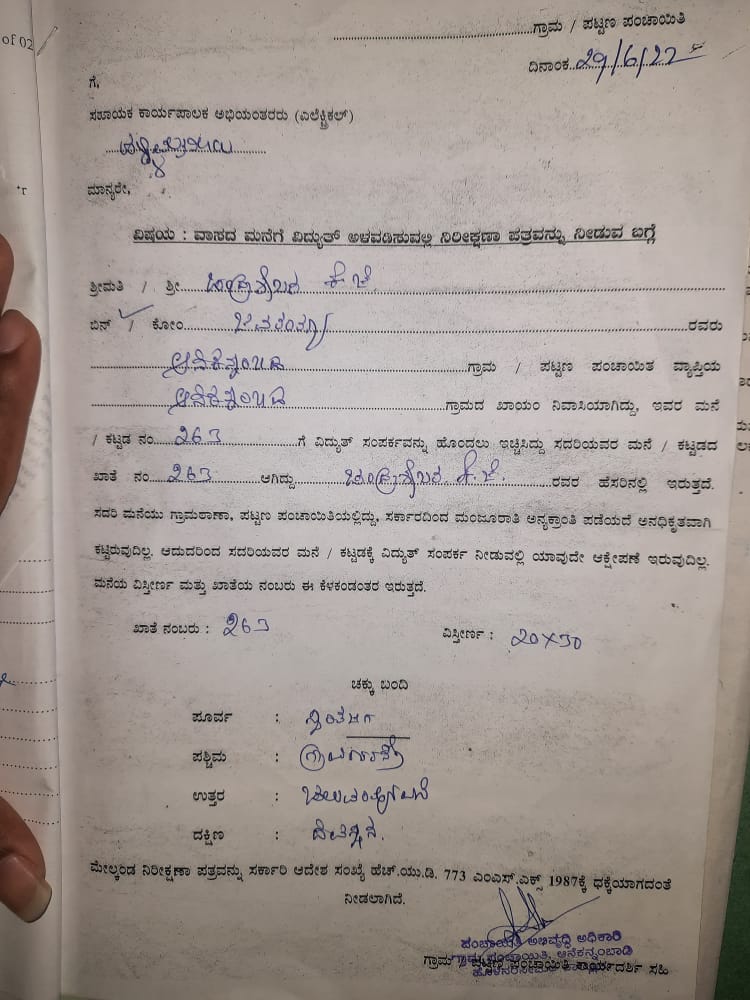 of 02
ಗ್ರಾಮ / ಪಟ್ಟಣ ಪಂಚಾಯಿತಿ
ದಿನಾಂಕ 29/6/22
ಗೆ,
ಸಹಾಯಕ ಕಾರ್ಯಪಾಲಕ ಅಭಿಯಂತರರು (ಎಲೆಕ್ಟ್ರಿಕಲ್)
ಮಾನ್ಯರೇ,
ವಿಷಯ : ವಾಸದ ಮನೆಗೆ ವಿದ್ಯುತ್ ಅಳವಡಿಸುವಲ್ಲಿ ನಿರೀಕ್ಷಣಾ ಪತ್ರವನ್ನು ನೀಡುವ ಬಗ್ಗೆ
ಶ್ರೀಮತಿ / ಶ್ರೀ ಚಂದ್ರಶೇಖರ ಕೆ.ಜೆ.
ಬಿನ್ / ಕೋಂ ರವರು
ಆನೆಕನ್ನಂಬಾಡಿ ಗ್ರಾಮ / ಪಟ್ಟಣ ಪಂಚಾಯಿತ ವ್ಯಾಪ್ತಿಯ
ಆನೆಕನ್ನಂಬಾಡಿ ಗ್ರಾಮದ ಖಾಯಂ ನಿವಾಸಿಯಾಗಿದ್ದು, ಇವರ ಮನೆ
/ ಕಟ್ಟಡ ನಂ 263 ಗೆ ವಿದ್ಯುತ್ ಸಂಪರ್ಕವನ್ನು ಹೊಂದಲು ಇಚ್ಚಿಸಿದ್ದು ಸದರಿಯವರ ಮನೆ / ಕಟ್ಟಡದ
ಖಾತೆ ನಂ 263 ಆಗಿದ್ದು ಚಂದ್ರಶೇಖರ ಕೆ.ಜೆ. ರವರ ಹೆಸರಿನಲ್ಲಿ ಇರುತ್ತದೆ.
ಸದರಿ ಮನೆಯು ಗ್ರಾಮಠಾಣಾ, ಪಟ್ಟಣ ಪಂಚಾಯಿತಿಯಲ್ಲಿದ್ದು, ಸರ್ಕಾರದಿಂದ ಮಂಜೂರಾತಿ ಅನ್ಯಕ್ರಾಂತಿ ಪಡೆಯದೆ ಅನಧಿಕೃತವಾಗಿ
ಕಟ್ಟಿರುವುದಿಲ್ಲ. ಆದುದರಿಂದ ಸದರಿಯವರ ಮನೆ / ಕಟ್ಟಡಕ್ಕೆ ವಿದ್ಯುತ್ ಸಂಪರ್ಕ ನೀಡುವಲ್ಲಿ ಯಾವುದೇ ಆಕ್ಷೇಪಣೆ ಇರುವುದಿಲ್ಲ.
ಮನೆಯ ವಿಸ್ತೀರ್ಣ ಮತ್ತು ಖಾತೆಯ ನಂಬರು ಈ ಕೆಳಕಂಡಂತರ ಇರುತ್ತದೆ.
ಖಾತೆ ನಂಬರು : 263 ವಿಸ್ತೀರ್ಣ : 20X30
ಚಕ್ಕು ಬಂದಿ
ಪೂರ್ವ :
ಪಶ್ಚಿಮ :
ಉತ್ತರ :
ದಕ್ಷಿಣ :
ಮೇಲ್ಕಂಡ ನಿರೀಕ್ಷಣಾ ಪತ್ರವನ್ನು ಸರ್ಕಾರಿ ಆದೇಶ ಸಂಖ್ಯೆ ಹೆಚ್.ಯು.ಡಿ. 773 ಎಂಎಸ್.ಎಕ್ಸ್ 1987ಕ್ಕೆ ಧಕ್ಕೆಯಾಗದಂತೆ
ನೀಡಲಾಗಿದೆ.
ಪಂಚಾಯತಿ ಅಭಿವೃದ್ಧಿ ಅಧಿಕಾರಿ
ಗ್ರಾಮ ಪಂಚಾಯಿತಿ, ಆನೆಕನ್ನಂಬಾಡಿ
ಗ್ರಾಮ / ಪಟ್ಟಣ ಪಂಚಾಯಿತಿ ಕಾರ್ಯದರ್ಶಿ ಸಹಿ